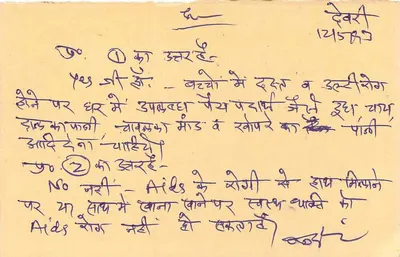 देवरी
प्र० ① का उत्तर है-
Yes जी हाँ - बच्चों में दस्त व उल्टी रोग
होने पर घर में उपलब्ध पेय पदार्थ जैसे दूध चाय
दाल का पानी - चावल का मांड व खोपरे का पानी
आदि देना चाहिये।
प्र० ② का उत्तर है-
No नहीं - Aids के रोगी से हाथ मिलाने
पर या साथ में खाना खाने पर स्वस्थ व्यक्ति को
Aids रोग नहीं हो सकता है।